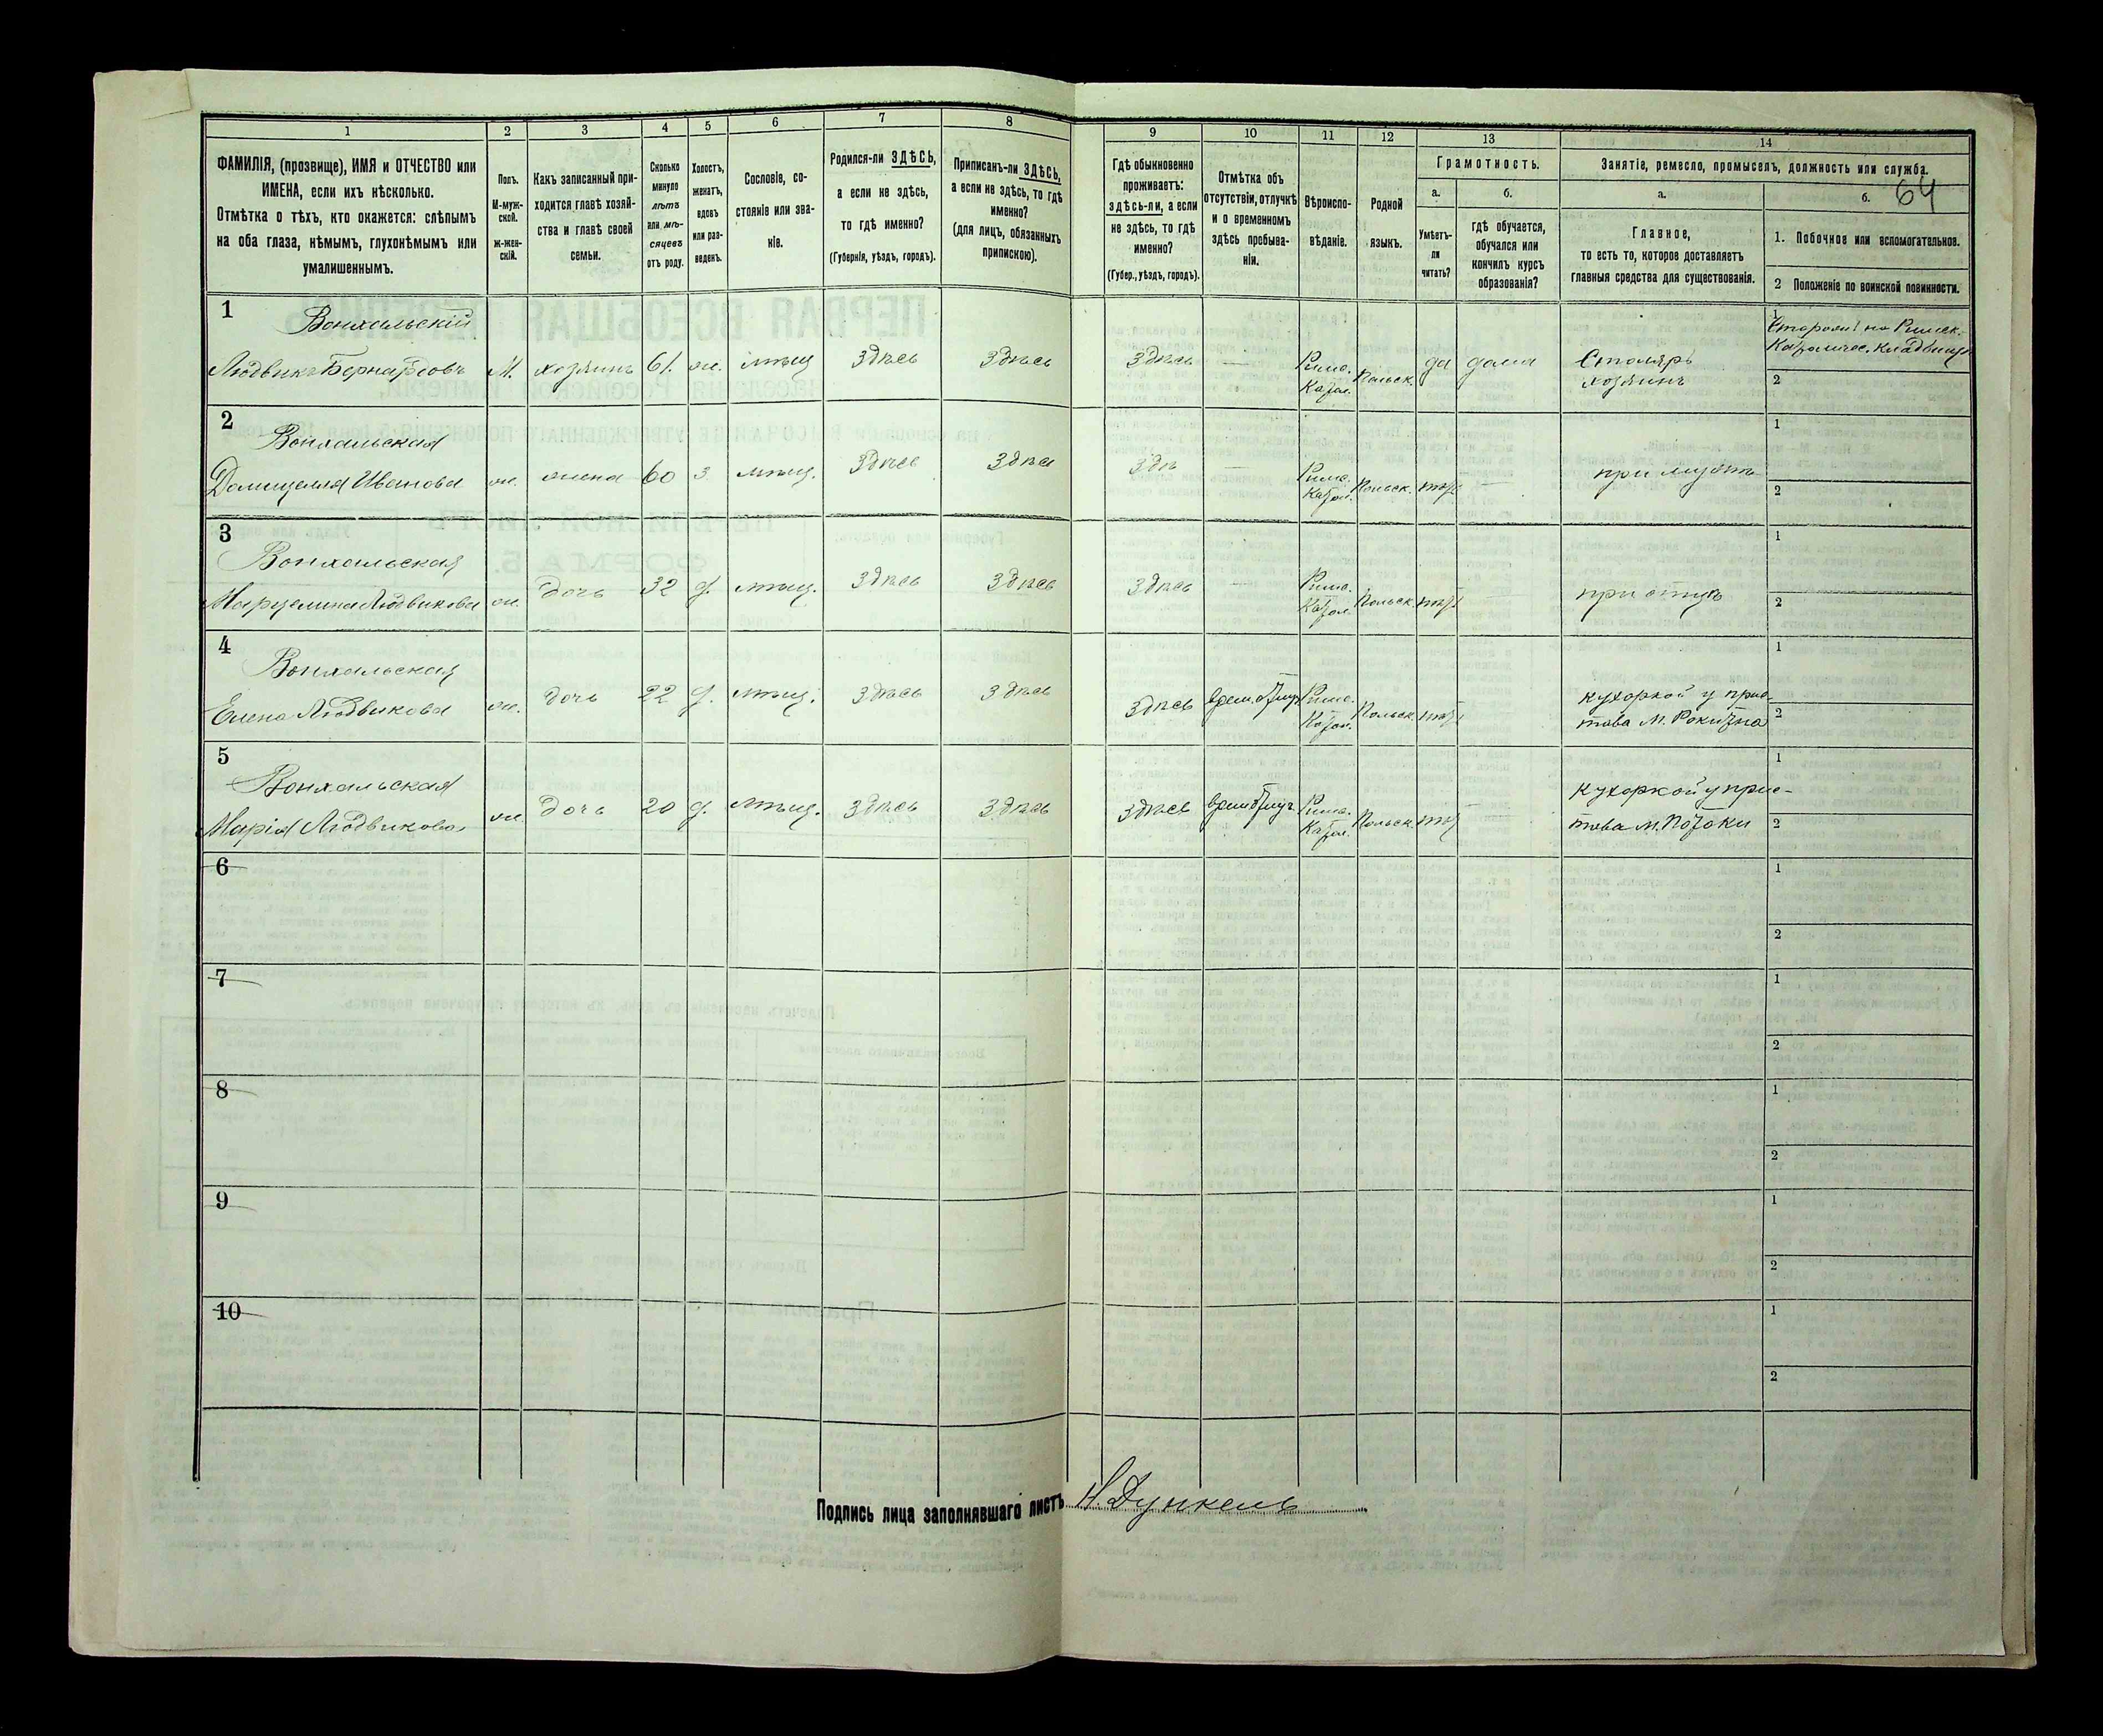 1 2 3 4 5 6 7 8 9 10 11 12 13 14
ФАМИЛІЯ, (прозвище), ИМЯ и ОТЧЕСТВО или
ИМЕНА, если ихъ нѣсколько.
Отмѣтка о тѣхъ, кто окажется: слѣпымъ
на оба глаза, нѣмымъ, глухонѣмымъ или
умалишеннымъ.
Полъ.
М-муж-
ской.
ж-жен-
скій.
Какъ записанный при-
ходится главѣ хозяй-
ства и главѣ своей
семьи.
Сколько
минуло
лѣтъ
или мѣ-
сяцевъ
отъ роду.
Холостъ,
женатъ,
вдовъ
или раз-
веденъ.
Сословіе, со-
стояніе или зва-
ніе.
Родился-ли ЗДѢСЬ,
а если не здѣсь,
то гдѣ именно?
(Губернія, уѣздъ, городъ).
Приписанъ-ли ЗДѢСЬ,
а если не здѣсь, то гдѣ
именно?
(для лицъ, обязанныхъ
припискою).
Гдѣ обыкновенно
проживаетъ:
здѣсь-ли, а если
не здѣсь, то гдѣ
именно?
(Губер., уѣздъ, городъ).
Отмѣтка объ
отсутствіи, отлучкѣ
и о временномъ
здѣсь пребыва-
ніи.
Вѣроиспо-
вѣданіе.
Родной
языкъ.
Грамотность.
а.
Умѣетъ-
ли
читать?
б.
гдѣ обучается,
обучался или
кончилъ курсъ
образованія?
Занятіе, ремесло, промыселъ, должность или служба.
64
а.
Главное,
то есть то, которое доставляетъ
главныя средства для существованія.
б.
1. Побочное или вспомогательное.
2 Положеніе по воинской повинности.
1
Вонхальскій
Людвикъ Бернардовъ М. хозяинъ 61. ж. мѣщ здѣсь здѣсь здѣсь — Римо. Катол. Польск. да дома Столяръ
хозяинъ
1
Сторожъ на Римск.
Католичес. кладбищѣ
2
2
Вонхальская
Домицелля Иванова ж. жена 60 з. мѣщ. здѣсь здѣсь здѣ — Римо. Катол. Польск. нѣтъ — при мужѣ
1
2
3
Вонхальская
Марцелина Людвикова ж. дочь 32 д. мѣщ. здѣсь здѣсь здѣсь — Римо. Катол. Польск. нѣтъ при отцѣ
1
2
4
Вонхальская
Елена Людвикова ж. дочь 22 д. мѣщ. здѣсь здѣсь здѣсь врем. отлуч Римо. Катол. Польск. нѣтъ
кухоркой у прис-
тава м. Рокитна
1
2
5
Вонхальская
Марія Людвикова ж. дочь 20 д. мѣщ. здѣсь здѣсь здѣсь врем отлуч. Римо. Катол. Польск. нѣтъ
кухоркой у прис-
тава м. Потоки
1
2
6
1
2
7
1
2
8
1
2
9
1
2
10
1
2
Подпись лица заполнявшаго листъ Н. Дункель